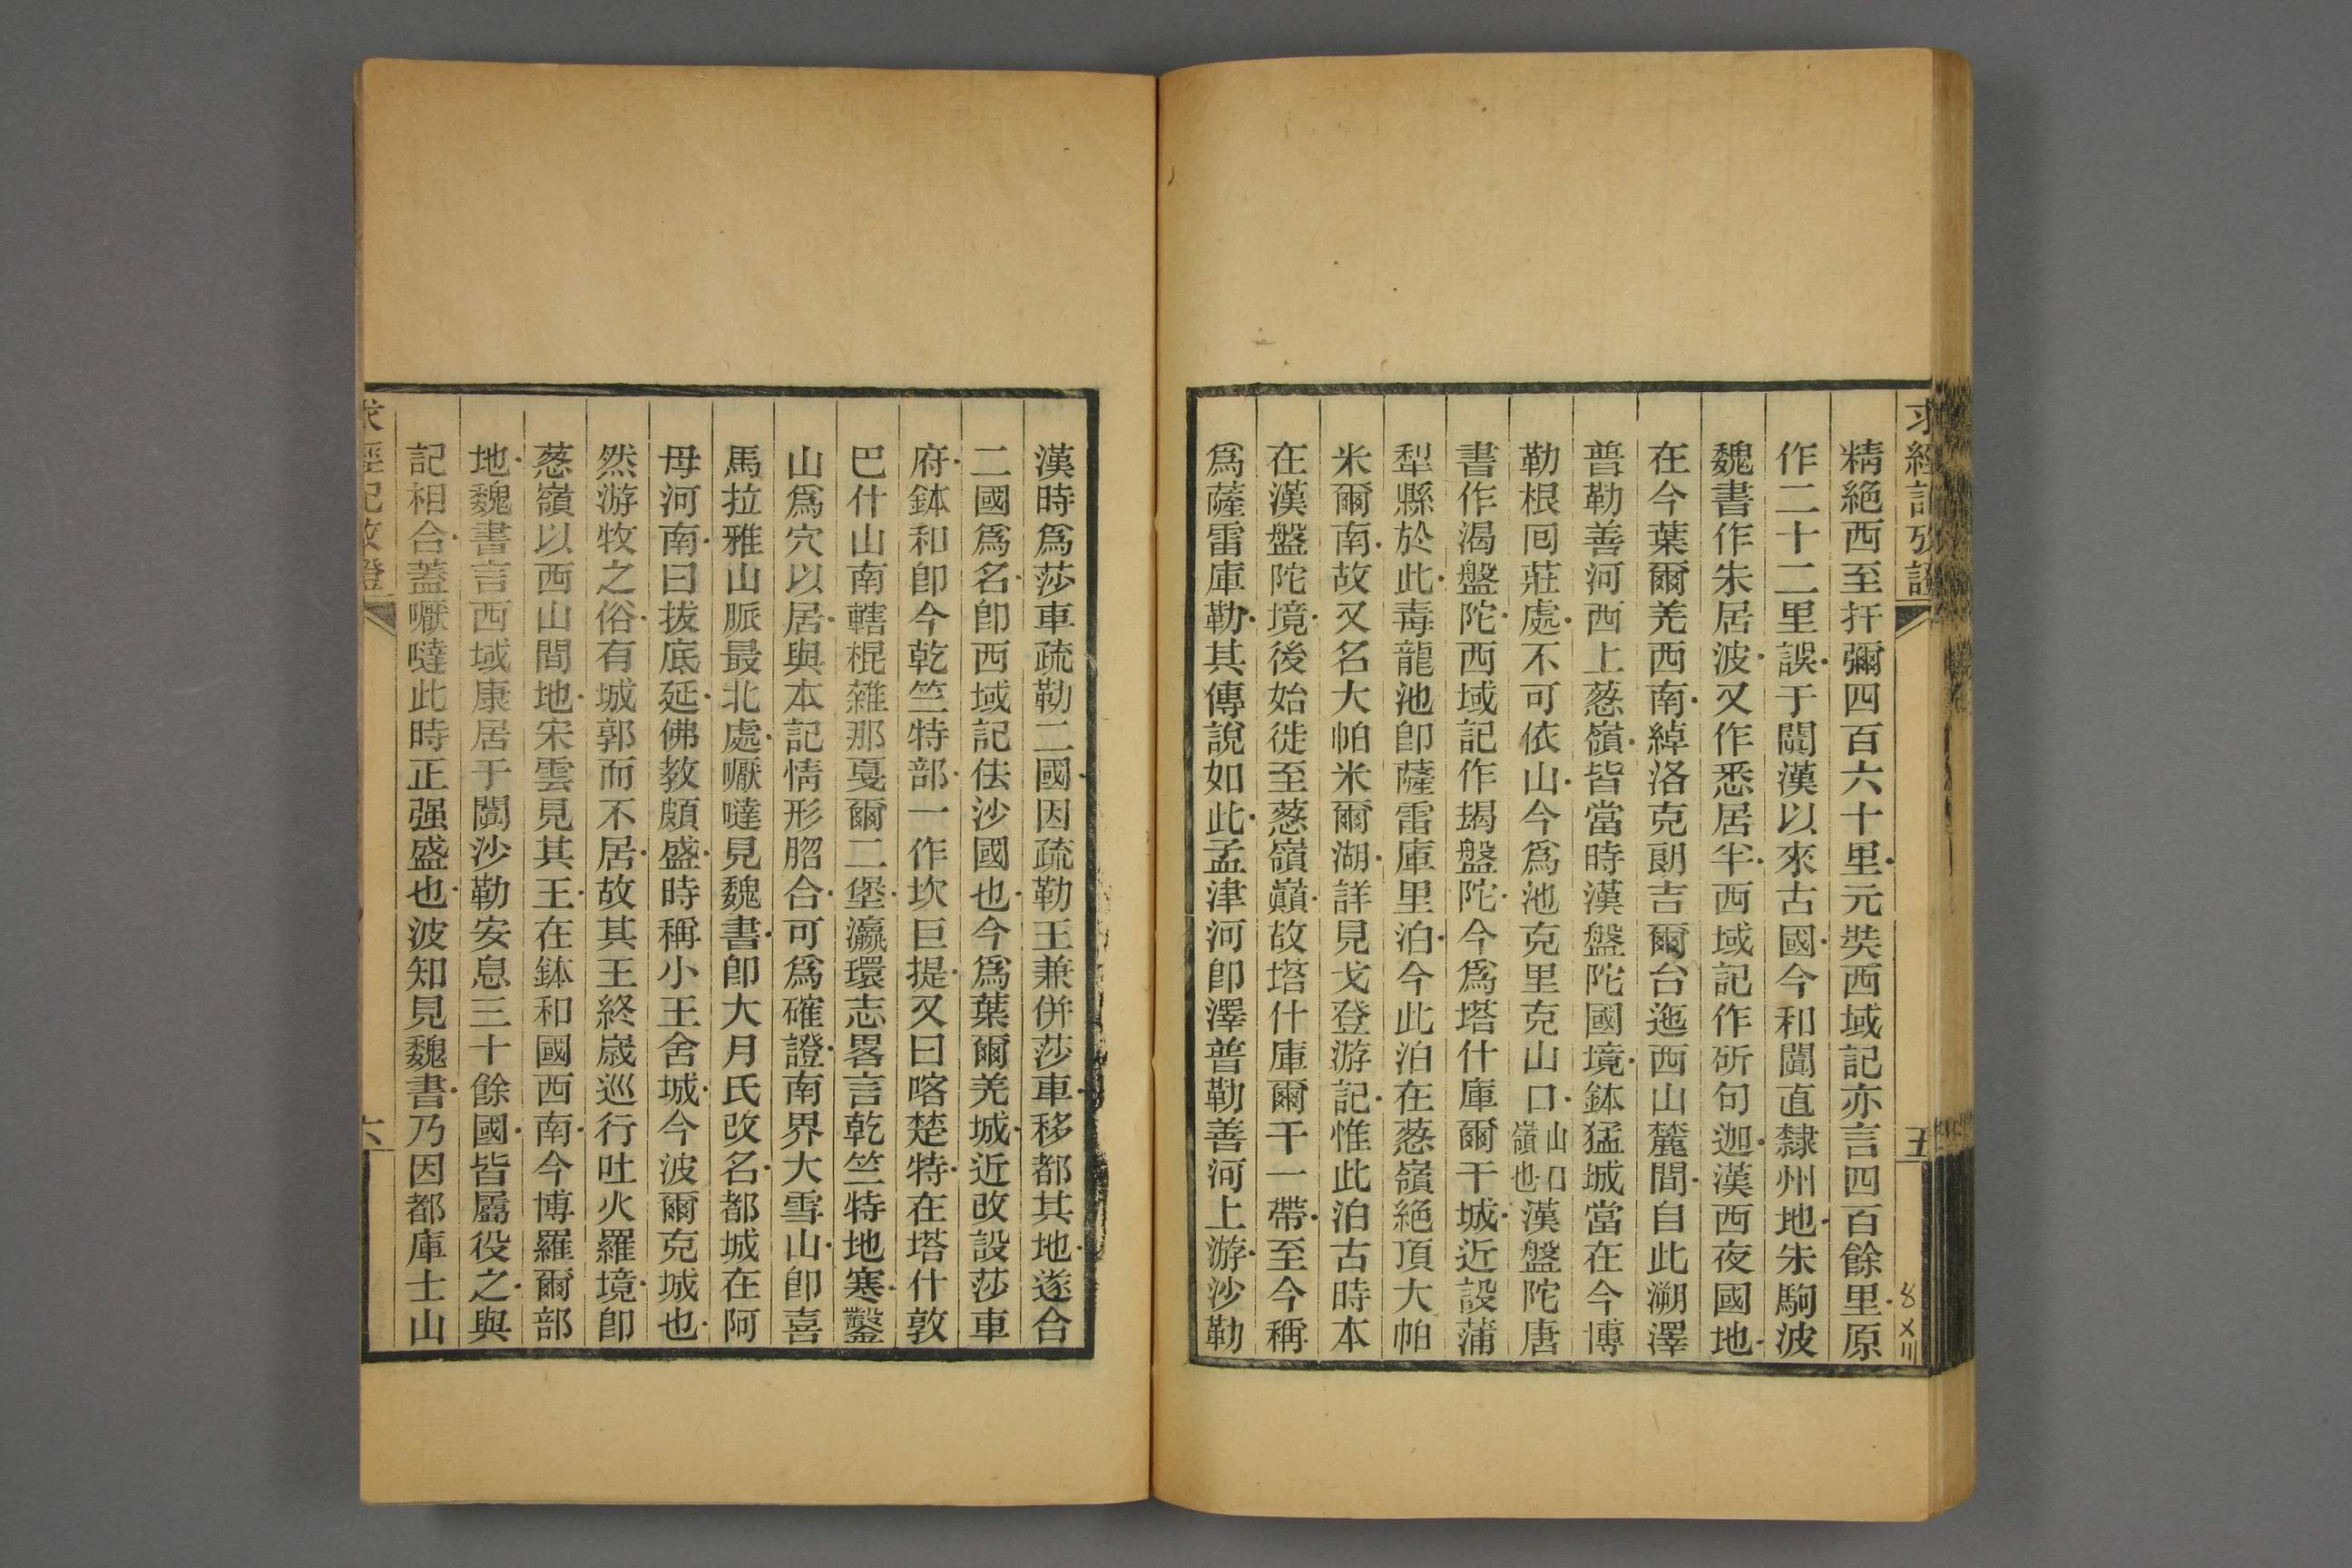 求經記攷證
五
精絕西至扞彌四百六十里元奘西域記亦言四百餘里原
作二十二里誤于闐漢以來古國今和闐直隸州地朱駒波
魏書作朱居波又作悉居半西域記作斫句迦漢西夜國地
在今葉爾羌西南綽洛克朗吉爾台迤西山麓間自此溯澤
普勒善河西上葱嶺皆當時漢盤陀國境鉢猛城當在今博
勒根囘莊處不可依山今爲池克里克山口山口嶺也漢盤陀唐
書作渴盤陀西域記作朅盤陀今爲塔什庫爾干城近設蒲
犁縣於此毒龍池卽薩雷庫里泊今此泊在葱嶺絕頂大帕
米爾南故又名大帕米爾湖詳見戈登游記惟此泊古時本
在漢盤陀境後始徙至葱嶺巔故塔什庫爾干一帶至今稱
爲薩雷庫勒其傳說如此孟津河卽澤普勒善河上游沙勒
漢時爲莎車疏勒二國因疏勒王兼併莎車移都其地遂合
二國爲名卽西域記佉沙國也今爲葉爾羌城近改設莎車
府鉢和卽今乾竺特部一作坎巨提又曰喀楚特在塔什敦
巴什山南轄棍雜那戛爾二堡瀛環志畧言乾竺特地寒鑿
山爲穴以居與本記情形脗合可爲確證南界大雪山卽喜
馬拉雅山脈最北處嚈噠見魏書卽大月氏改名都城在阿
母河南曰拔底延佛教頗盛時稱小王舍城今波爾克城也
然游牧之俗有城郭而不居故其王終嵗巡行吐火羅境卽
葱嶺以西山間地宋雲見其王在鉢和國西南今博羅爾部
地魏書言西域康居于闐沙勒安息三十餘國皆屬役之與
記相合蓋嚈噠此時正强盛也波知見魏書乃因都庫士山
求經記攷證
六